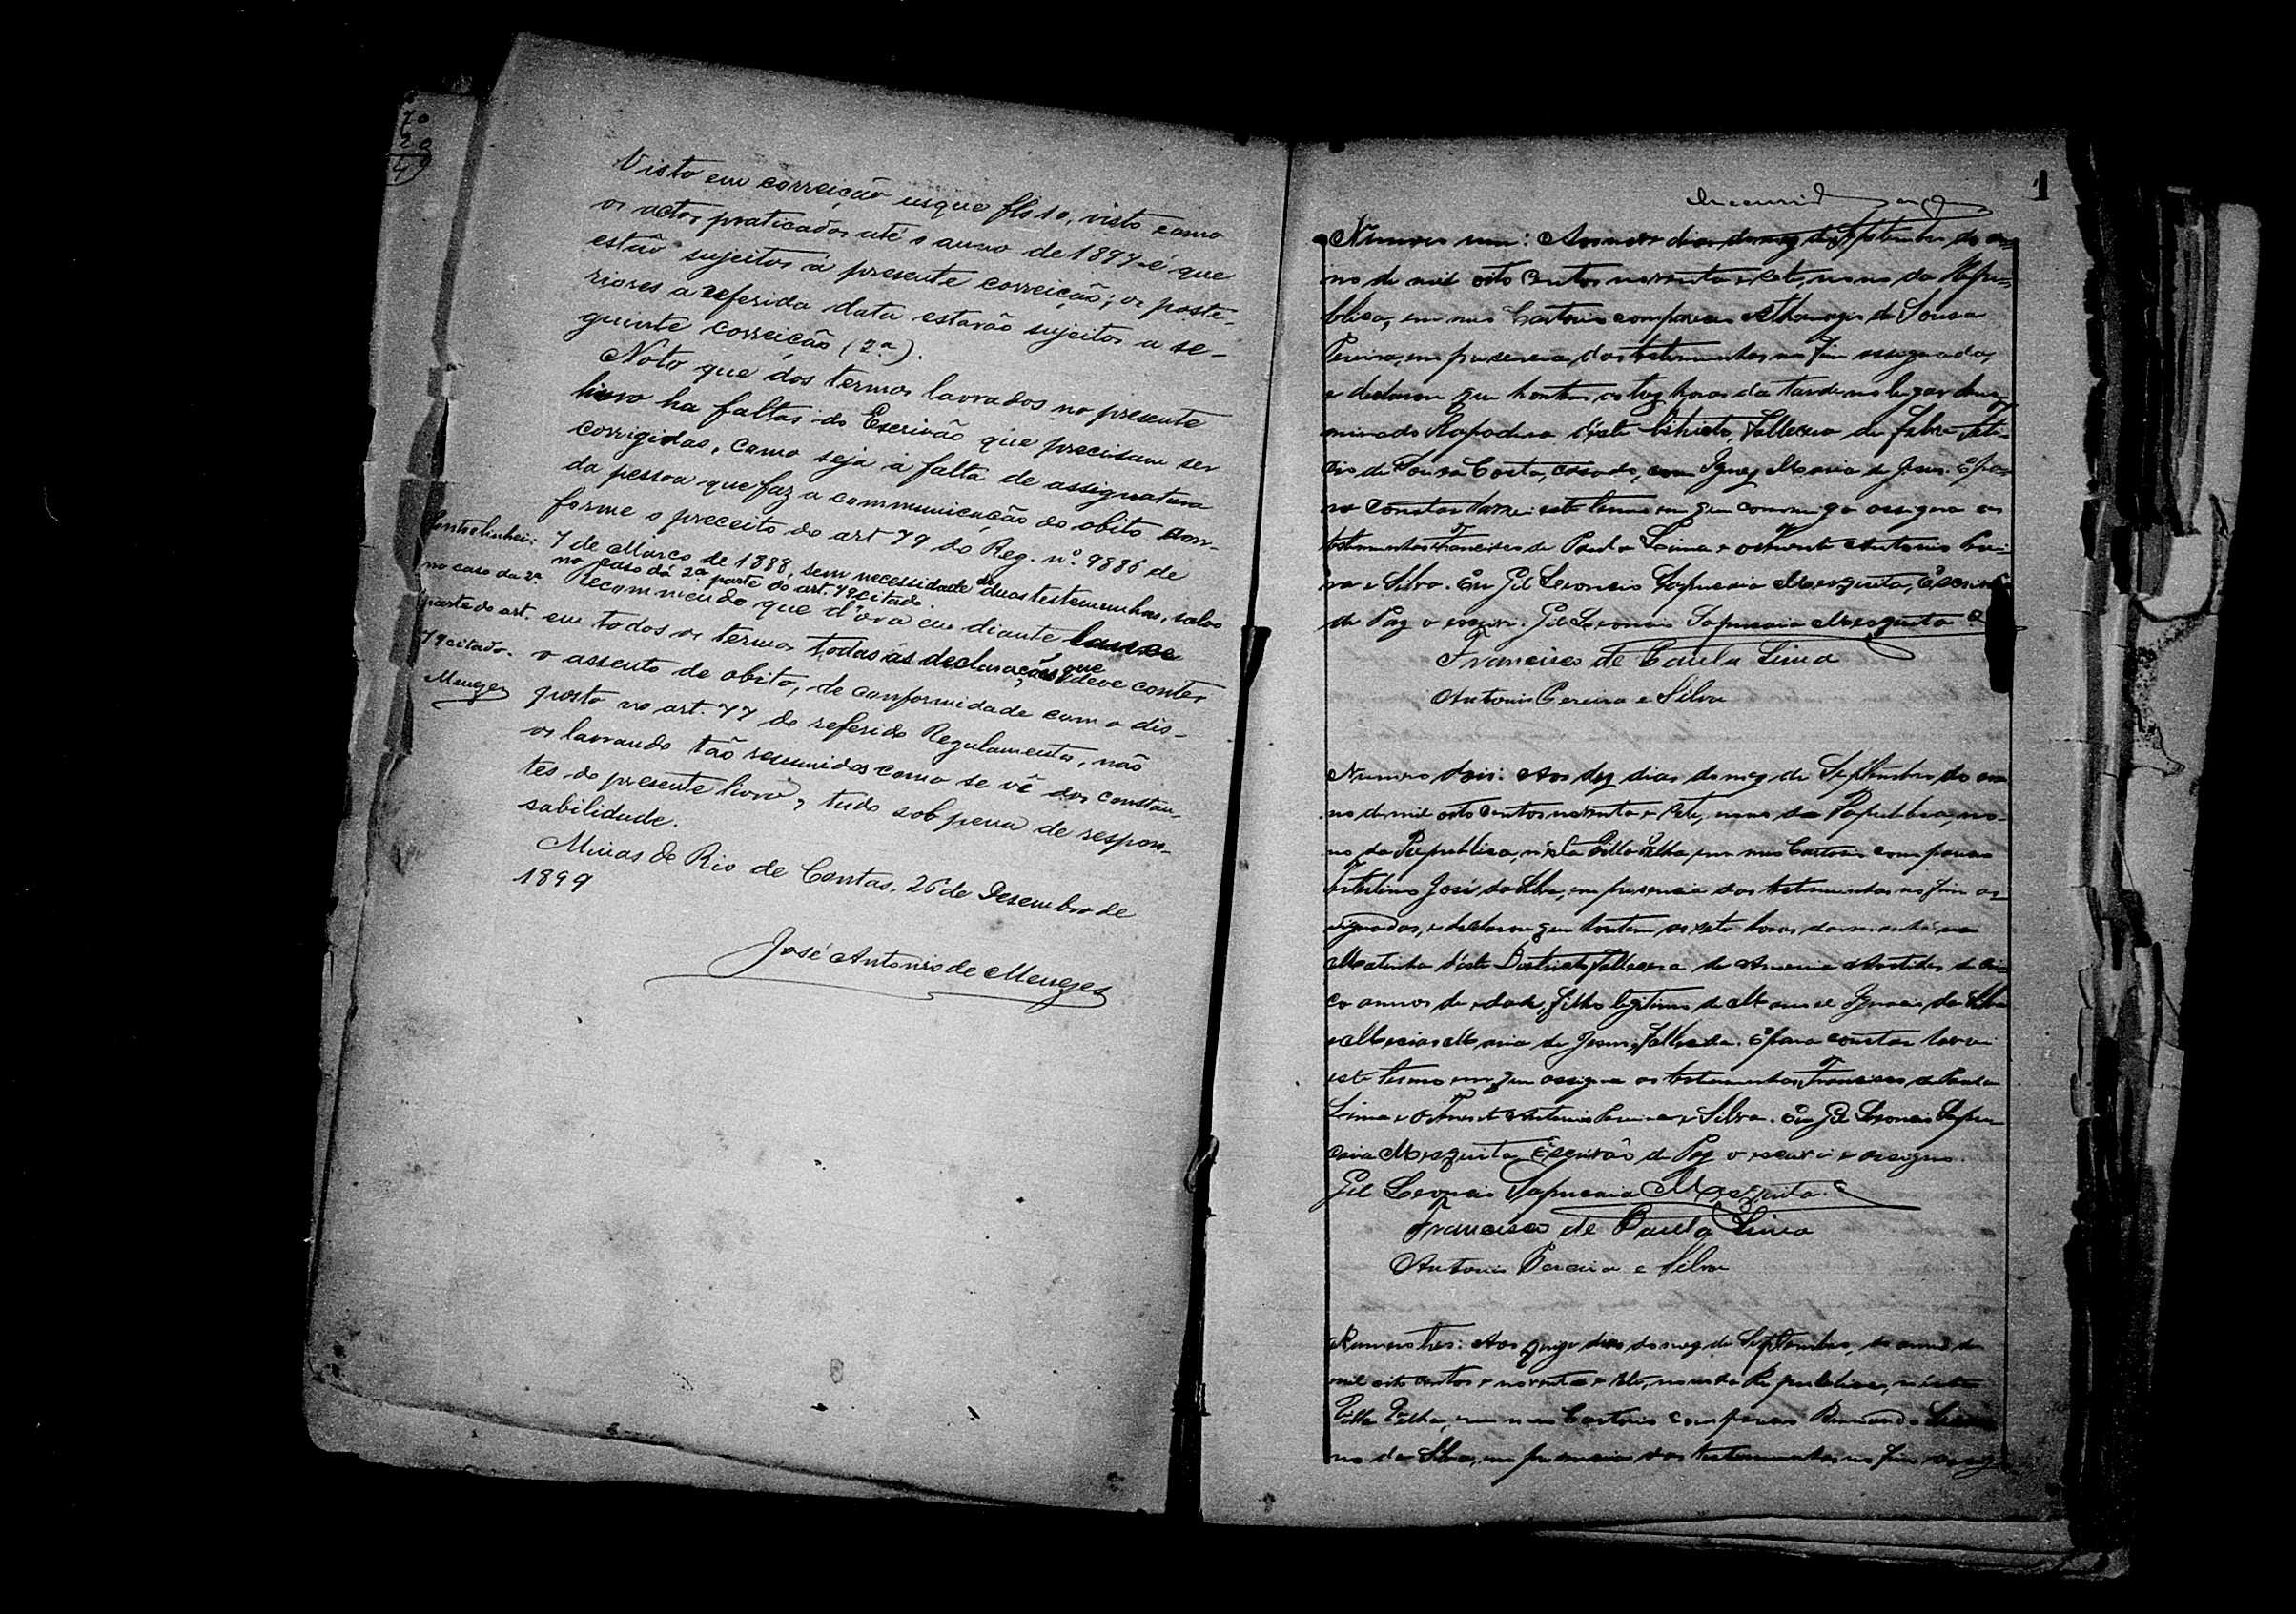 Visto em correição usque fls 10, visto como
os actos praticados até o anno de 1897 é que
estão sujeitos á presente correição; os poste-
riores a referida data estarão sujeitos a se-
guinte correição (2ª).
Noto que dos termos lavrados no presente
livro ha faltas do Escrivão que precisam ser
corrigidas, como seja a falta de assignatura
da pessoa que faz a communicação do obito con-
forme o preceito do art 79 do Reg. nº. 9886 de
7 de Março de 1888, sem necessidade de duas testemunhas, salvo
no caso da 2ª parte do art. 79 citado.
Recommendo que d'ora em diante lance
em todos os termos todas as declarações que deve conter
o assento de obito, de conformidade com o dis-
posto no art. 77 do referido Regulamento, não
os lavrando tão resumidos como se vê dos constan-
tes do presente livro, tudo sob pena de respon-
sabilidade.
Minas do Rio de Contas, 26 de Desembro de
1899
José Antonio de Menezes
Entrelinhei:
no caso da 2ª
parte do art.
79 citado.
Menezes
1
Numero um: Aos nove dias do mez de Septembro do an-
no de mil oito centos noventa e sete, nono da Repu-
blica, em meu Cartorio compareceu de Sousa
Pereira, em presencia das testemunhas no fim assignadas,
e declarou que hontem as trez horas da tarde no lugar deno-
minado Rapadura d'este Districto, falleceu de febre
de Sousa Costa, casado, com Ignez Maria de Jesus. E pa-
ra constar lavrei este termo em que commigo assigna as
testemunhas Francisco de Paula Lima e Antonio Perei-
ra e Silva. Eu Gil Leoncio Sapucaia Mesquita, Escrivão
de Paz o escrevi. Gil Leoncio Sapucaia Mesquita
Francisco de Paula Lima
Antonio Pereira e Silva
Numero dois: Aos dez dias do mez de Septembro do an-
no de mil oito centos noventa e sete, nono da Republica, no-
no da Republica, n'esta Villa Velha, em meu Cartorio compareceu
José da Silva, em presencia das testemunhas no fim as-
signadas, e declarou que hontem as sete horas da manhã na
Matinha d'este Districto, falleceu de de cin-
co annos de idade, filho legitimo de Manoel Ignacio da Silva
e Maria de Jesus, fallecida. E para constar lavrei
este termo em que assigna as testemunhas, Francisco de Paula
Lima e Antonio Pereira e Silva. Eu Gil Leoncio Sapu-
caia Mesquita, Escrivão de Paz o escrevi e assigno.
Gil Leoncio Sapucaia Mesquita
Francisco de Paula Lima
Antonio Pereira e Silva
Numero tres: Aos quinze dias do mez de Septembro, do anno de
mil oito centos e noventa e sete, nono da Republica, n'esta
Villa Velha, em meu Cartorio compareceu
no da Silva, em presencia das testemunhas no fim assig-